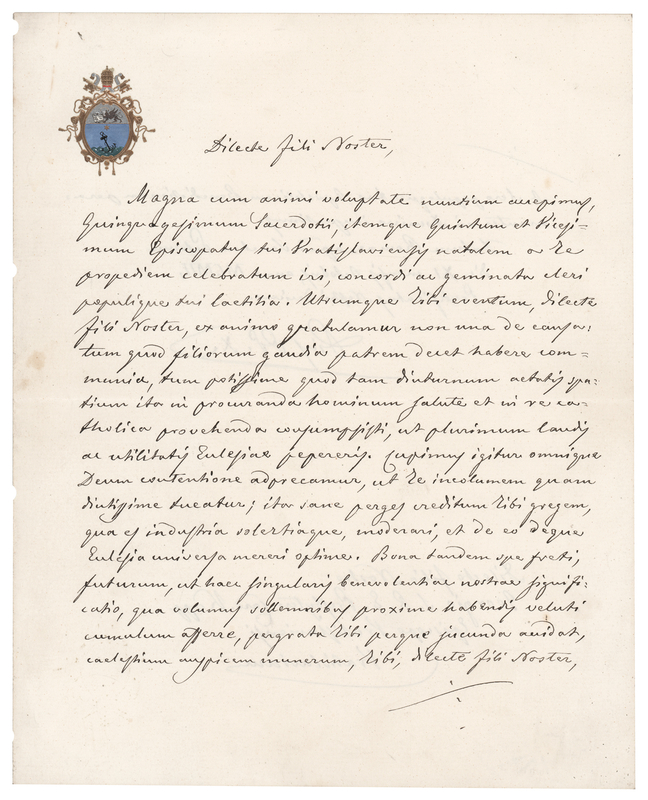 Dilecte fili Noster,
Magna cum animi voluptate nuntium accepimus,
Quinquagesimum Sacerdotii, itemque Quintum et Vicesi-
mum Episcopatus tui Vratislaviensis natalem a Te
propediem celebratum iri, concordi ac geminata cleri
populique tui laetitia. Utrumque Tibi eventum, dilecte
fili Noster, ex animo gratulamur non una de causa:
tum quod filiorum gaudia patrem decet habere com-
munia, tum potissime quod tam diuturnum aetatis spa-
tium ita in procuranda hominum salute et in re ca-
tholica provehenda consumpsisti, ut plurimum laudis
ac utilitatis Ecclesiae pepereris. Cupimus igitur omnique
Deum contentione adprecamur, ut Te incolumem quam
diutissime tueatur; ita sane perges creditum Tibi gregem,
qua es industria solertiaque, moderari, et de eo deque
Ecclesia universa mereri optime. Bona tandem spe freti,
futurum, ut haec singularis benevolentiae nostrae signifi-
catio, qua volumus sollemnibus proxime habendis veluti
cumulum afferre, pergrata Tibi perque jucunda accidat,
caelestium auspicem munerum, Tibi, dilecte fili Noster,